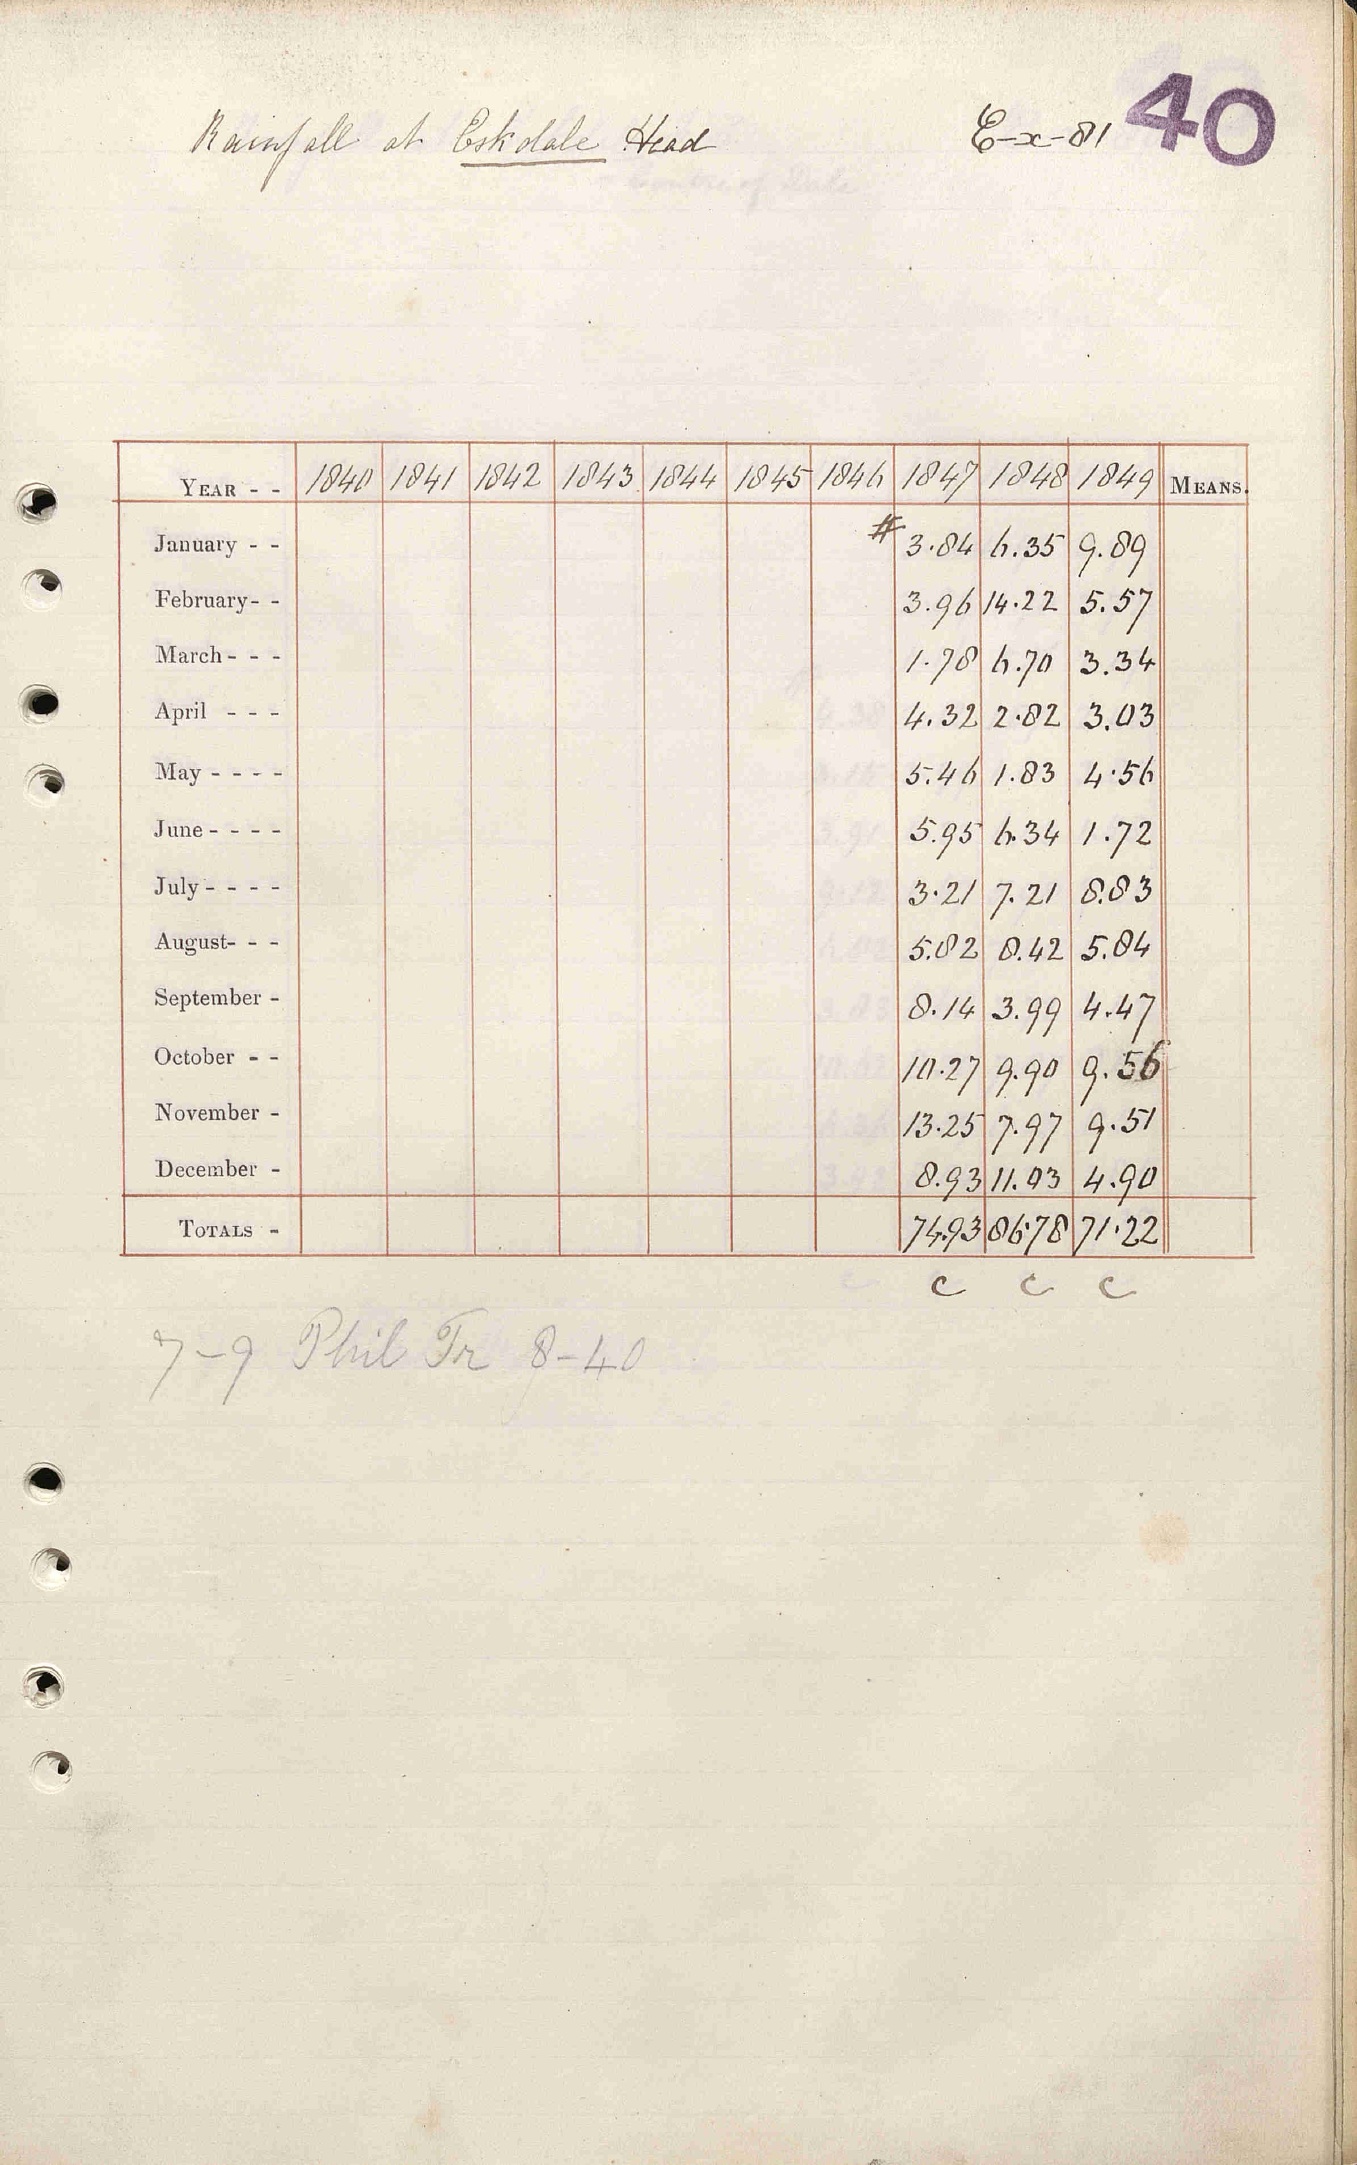 Rainfall at Eskdale Head E-x-81 40
YEAR - - 1840 1841 1842 1843 1844 1845 1846 1847 1848 1849 MEANS.
January - - # 3.84 6.35 9.89
February - - 3.96 14.22 5.57
March - - - 1.78 6.70 3.34
April - - - 4.32 2.82 3.03
May - - - - 5.46 1.83 4.56
June - - - - 5.95 6.34 1.72
July - - - - 3.21 7.21 8.83
August - - - 5.82 8.42 5.84
September - 8.14 3.99 4.47
October - - 10.27 9.90 9.56
November - 13.25 7.97 9.51
December - 8.93 11.03 4.90
TOTALS - 74.93 86.78 71.22
c c c
7-9 Phil Tr 8-40